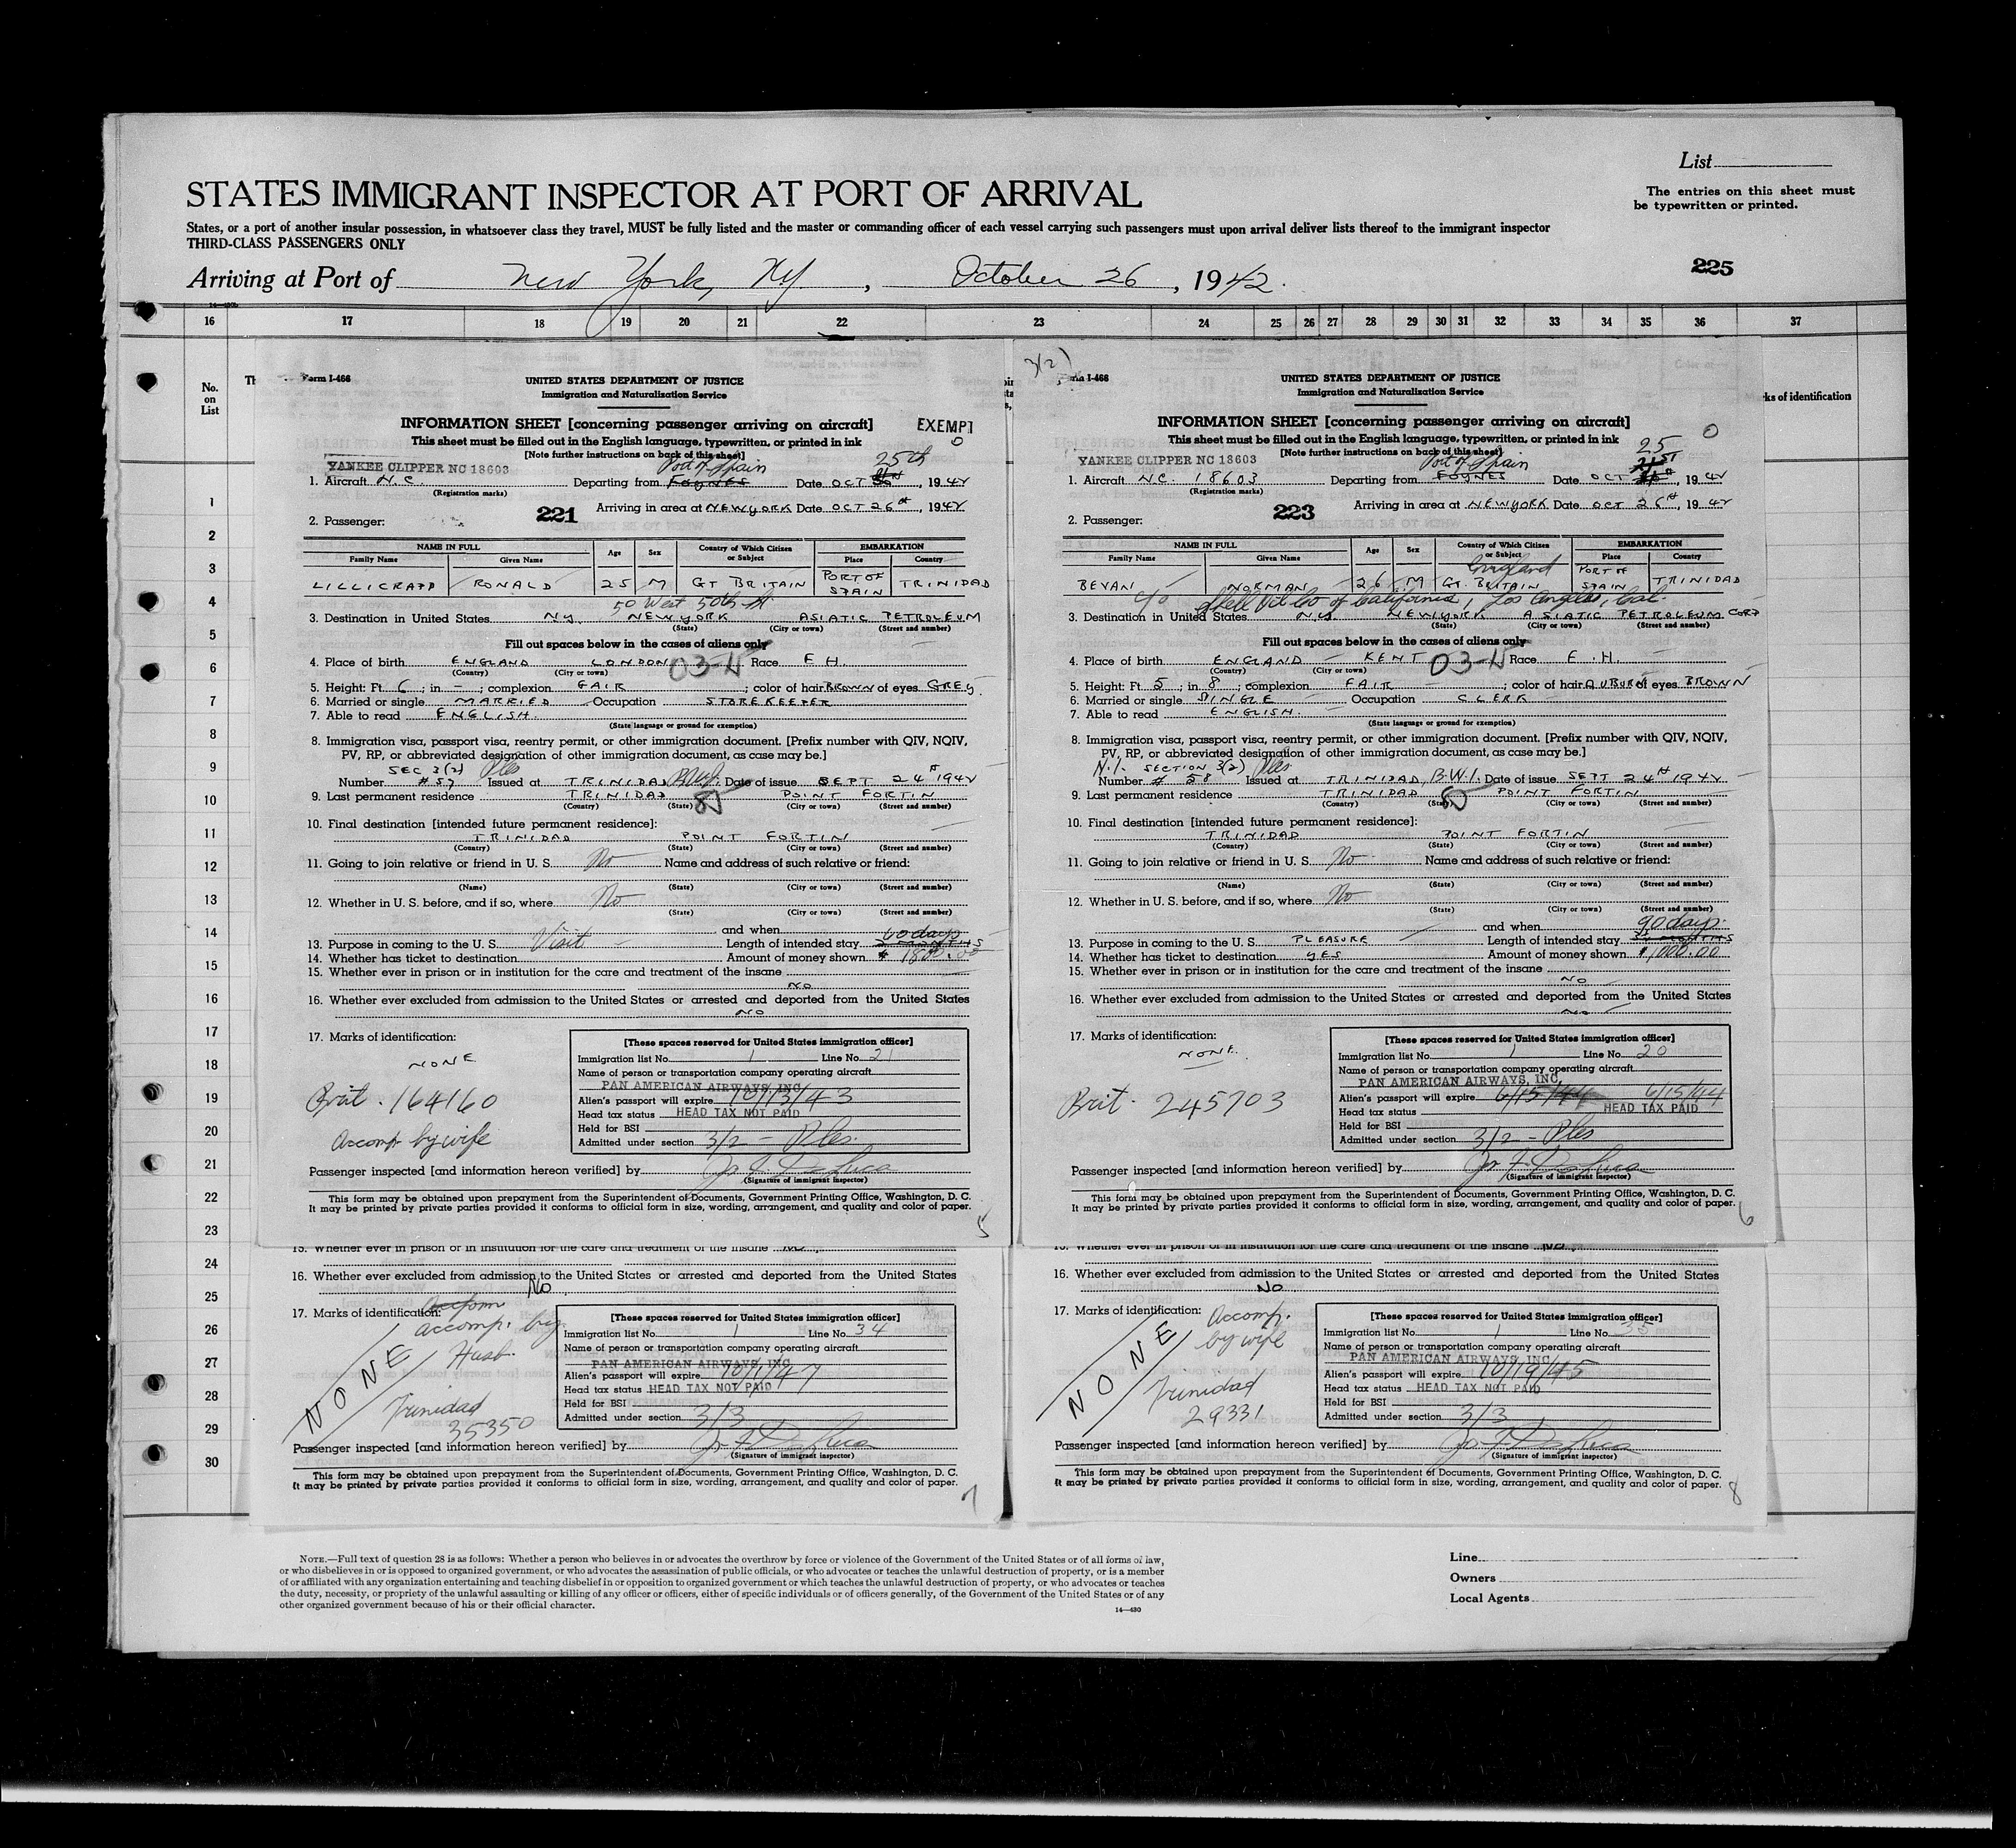 List
The entries on this sheet must
be typewritten or printed.
STATES IMMIGRANT INSPECTOR AT PORT OF ARRIVAL
States, or a port of another insular possession, in whatsoever class they travel, MUST be fully listed and the master or commanding officer of each vessel carrying such passengers must upon arrival deliver lists thereof to the immigrant inspector
THIRD-CLASS PASSENGERS ONLY
225
Arriving at Port of New York, NY, October 26, 1942.
16 17 18 19 20 21 22 23 24 25 26 27 28 29 30 31 32 33 34 35 36 37
No.
on
List
ks of identification
1
2
3
4
5
6
7
8
9
10
11
12
13
14
15
16
17
18
19
20
21
22
23
24
25
26
27
28
29
30
Form I-466
UNITED STATES DEPARTMENT OF JUSTICE
Immigration and Naturalization Service
INFORMATION SHEET [concerning passenger arriving on aircraft]
EXEMPT
This sheet must be filled out in the English language, typewritten, or printed in ink
0
[Note further instructions on back of this sheet]
YANKEE CLIPPER NC 18603
Port of Spain
25th
1. Aircraft N.C. Departing from FOYNES Date OCT , 1942
(Registration marks)
221
Arriving in area at NEWYORK Date OCT 26th, 1942
2. Passenger:
NAME IN FULL Age Sex Country of Which Citizen or Subject EMBARKATION
Family Name Given Name Place Country
LILLICRAPP RONALD 25 M GT BRITAIN PORT OF SPAIN TRINIDAD
50 West 50th St
3. Destination in United States NY. NEWYORK ASIATIC PETROLEUM
(State) (City or town) (Street and number)
Fill out spaces below in the cases of aliens only
4. Place of birth ENGLAND LONDON 03-4 Race E H.
(Country) (City or town)
5. Height: Ft 6; in -; complexion FAIR; color of hair BROWN of eyes GREY.
6. Married or single MARRIED Occupation STOREKEEPER
7. Able to read ENGLISH.
(State language or ground for exemption)
8. Immigration visa, passport visa, reentry permit, or other immigration document. [Prefix number with QIV, NQIV,
PV, RP, or abbreviated designation of other immigration document, as case may be.]
SEC 3(2) Ples
Number #57 Issued at TRINIDAD B.W.I. Date of issue SEPT 24th 1942
9. Last permanent residence TRINIDAD POINT FORTIN
(Country) (State) (City or town) (Street and number)
10. Final destination [intended future permanent residence]:
TRINIDAD POINT FORTIN
(Country) (State) (City or town) (Street and number)
11. Going to join relative or friend in U. S. No Name and address of such relative or friend:
(Name) (State) (City or town) (Street and number)
12. Whether in U. S. before, and if so, where No
(State) (City or town) (Street and number)
and when
60 days
13. Purpose in coming to the U. S. Visit Length of intended stay 2 MONTHS
14. Whether has ticket to destination Amount of money shown $ 1800.00
15. Whether ever in prison or in institution for the care and treatment of the insane
NO
16. Whether ever excluded from admission to the United States or arrested and deported from the United States
NO
17. Marks of identification:
NONE
Brit. 164160
Accomp by wife
[These spaces reserved for United States immigration officer]
Immigration list No. 1 Line No. 21
Name of person or transportation company operating aircraft
PAN AMERICAN AIRWAYS, INC.
Alien's passport will expire 10/13/43
Head tax status HEAD TAX NOT PAID
Held for BSI
Admitted under section 3/2 - Ples.
Passenger inspected [and information hereon verified] by Jos. F. DeLuca
(Signature of immigrant inspector)
This form may be obtained upon prepayment from the Superintendent of Documents, Government Printing Office, Washington, D. C.
It may be printed by private parties provided it conforms to official form in size, wording, arrangement, and quality and color of paper.
5
3(2)
Form I-466
UNITED STATES DEPARTMENT OF JUSTICE
Immigration and Naturalization Service
INFORMATION SHEET [concerning passenger arriving on aircraft]
0
This sheet must be filled out in the English language, typewritten, or printed in ink
25
[Note further instructions on back of this sheet]
YANKEE CLIPPER NC 18603
Port of Spain
1. Aircraft NC. 18603 Departing from FOYNES Date OCT , 1942
(Registration marks)
223
Arriving in area at NEWYORK Date OCT 26th, 1942
2. Passenger:
NAME IN FULL Age Sex Country of Which Citizen or Subject EMBARKATION
Family Name Given Name Place Country
England
BEVAN NORMAN 26 M GT. BRITAIN PORT OF SPAIN TRINIDAD
c/o Shell Oil Co of California, Los Angeles, Cal.
3. Destination in United States N.Y. NEWYORK ASIATIC PETROLEUM CORP
(State) (City or town) (Street and number)
Fill out spaces below in the cases of aliens only
4. Place of birth ENGLAND KENT 03-4 Race E.H.
(Country) (City or town)
5. Height: Ft 5; in 8; complexion FAIR; color of hair AUBURN of eyes BROWN
6. Married or single SINGLE Occupation CLERK
7. Able to read ENGLISH.
(State language or ground for exemption)
8. Immigration visa, passport visa, reentry permit, or other immigration document. [Prefix number with QIV, NQIV,
PV, RP, or abbreviated designation of other immigration document, as case may be.]
N.I. SECTION 3(2) Ples
Number # 58 Issued at TRINIDAD, B.W.I. Date of issue SEPT 24th 1942
9. Last permanent residence TRINIDAD POINT FORTIN
(Country) (State) (City or town) (Street and number)
10. Final destination [intended future permanent residence]:
TRINIDAD POINT FORTIN
(Country) (State) (City or town) (Street and number)
11. Going to join relative or friend in U. S. No Name and address of such relative or friend:
(Name) (State) (City or town) (Street and number)
12. Whether in U. S. before, and if so, where No
(State) (City or town) (Street and number)
and when
90 days
13. Purpose in coming to the U. S. PLEASURE Length of intended stay
14. Whether has ticket to destination YES Amount of money shown $1,000.00
15. Whether ever in prison or in institution for the care and treatment of the insane
NO
16. Whether ever excluded from admission to the United States or arrested and deported from the United States
NO
17. Marks of identification:
NONE.
Brit. 245703
[These spaces reserved for United States immigration officer]
Immigration list No. 1 Line No. 20
Name of person or transportation company operating aircraft
PAN AMERICAN AIRWAYS, INC.
Alien's passport will expire 6/15/44 6/15/44
Head tax status HEAD TAX PAID
Held for BSI
Admitted under section 3/2 - Ples
Passenger inspected [and information hereon verified] by Jos. F. DeLuca
(Signature of immigrant inspector)
This form may be obtained upon prepayment from the Superintendent of Documents, Government Printing Office, Washington, D. C.
It may be printed by private parties provided it conforms to official form in size, wording, arrangement, and quality and color of paper.
6
15. Whether ever in prison or in institution for the care and treatment of the insane NO
16. Whether ever excluded from admission to the United States or arrested and deported from the United States
No
17. Marks of identification:
accomp. by
Husb.
NONE
Trinidad
35350
[These spaces reserved for United States immigration officer]
Immigration list No. 1 Line No. 34
Name of person or transportation company operating aircraft
PAN AMERICAN AIRWAYS, INC.
Alien's passport will expire 10/1/47
Head tax status HEAD TAX NOT PAID
Held for BSI
Admitted under section 3/3
Passenger inspected [and information hereon verified] by Jos. F. DeLuca
(Signature of immigrant inspector)
This form may be obtained upon prepayment from the Superintendent of Documents, Government Printing Office, Washington, D. C.
It may be printed by private parties provided it conforms to official form in size, wording, arrangement, and quality and color of paper.
7
15. Whether ever in prison or in institution for the care and treatment of the insane NO
16. Whether ever excluded from admission to the United States or arrested and deported from the United States
No
17. Marks of identification:
Accomp.
by wife
NONE
Trinidad
29331
[These spaces reserved for United States immigration officer]
Immigration list No. 1 Line No. 35
Name of person or transportation company operating aircraft
PAN AMERICAN AIRWAYS, INC.
Alien's passport will expire 10/19/45
Head tax status HEAD TAX NOT PAID
Held for BSI
Admitted under section 3/3
Passenger inspected [and information hereon verified] by Jos. F. DeLuca
(Signature of immigrant inspector)
This form may be obtained upon prepayment from the Superintendent of Documents, Government Printing Office, Washington, D. C.
It may be printed by private parties provided it conforms to official form in size, wording, arrangement, and quality and color of paper.
8
NOTE.—Full text of question 28 is as follows: Whether a person who believes in or advocates the overthrow by force or violence of the Government of the United States or of all forms of law,
or who disbelieves in or is opposed to organized government, or who advocates the assassination of public officials, or who advocates or teaches the unlawful destruction of property, or is a member
of or affiliated with any organization entertaining and teaching disbelief in or opposition to organized government or which teaches the unlawful destruction of property, or who advocates or teaches
the duty, necessity, or propriety of the unlawful assaulting or killing of any officer or officers, either of specific individuals or of officers generally, of the Government of the United States or of any
other organized government because of his or their official character.
14—430
Line
Owners
Local Agents